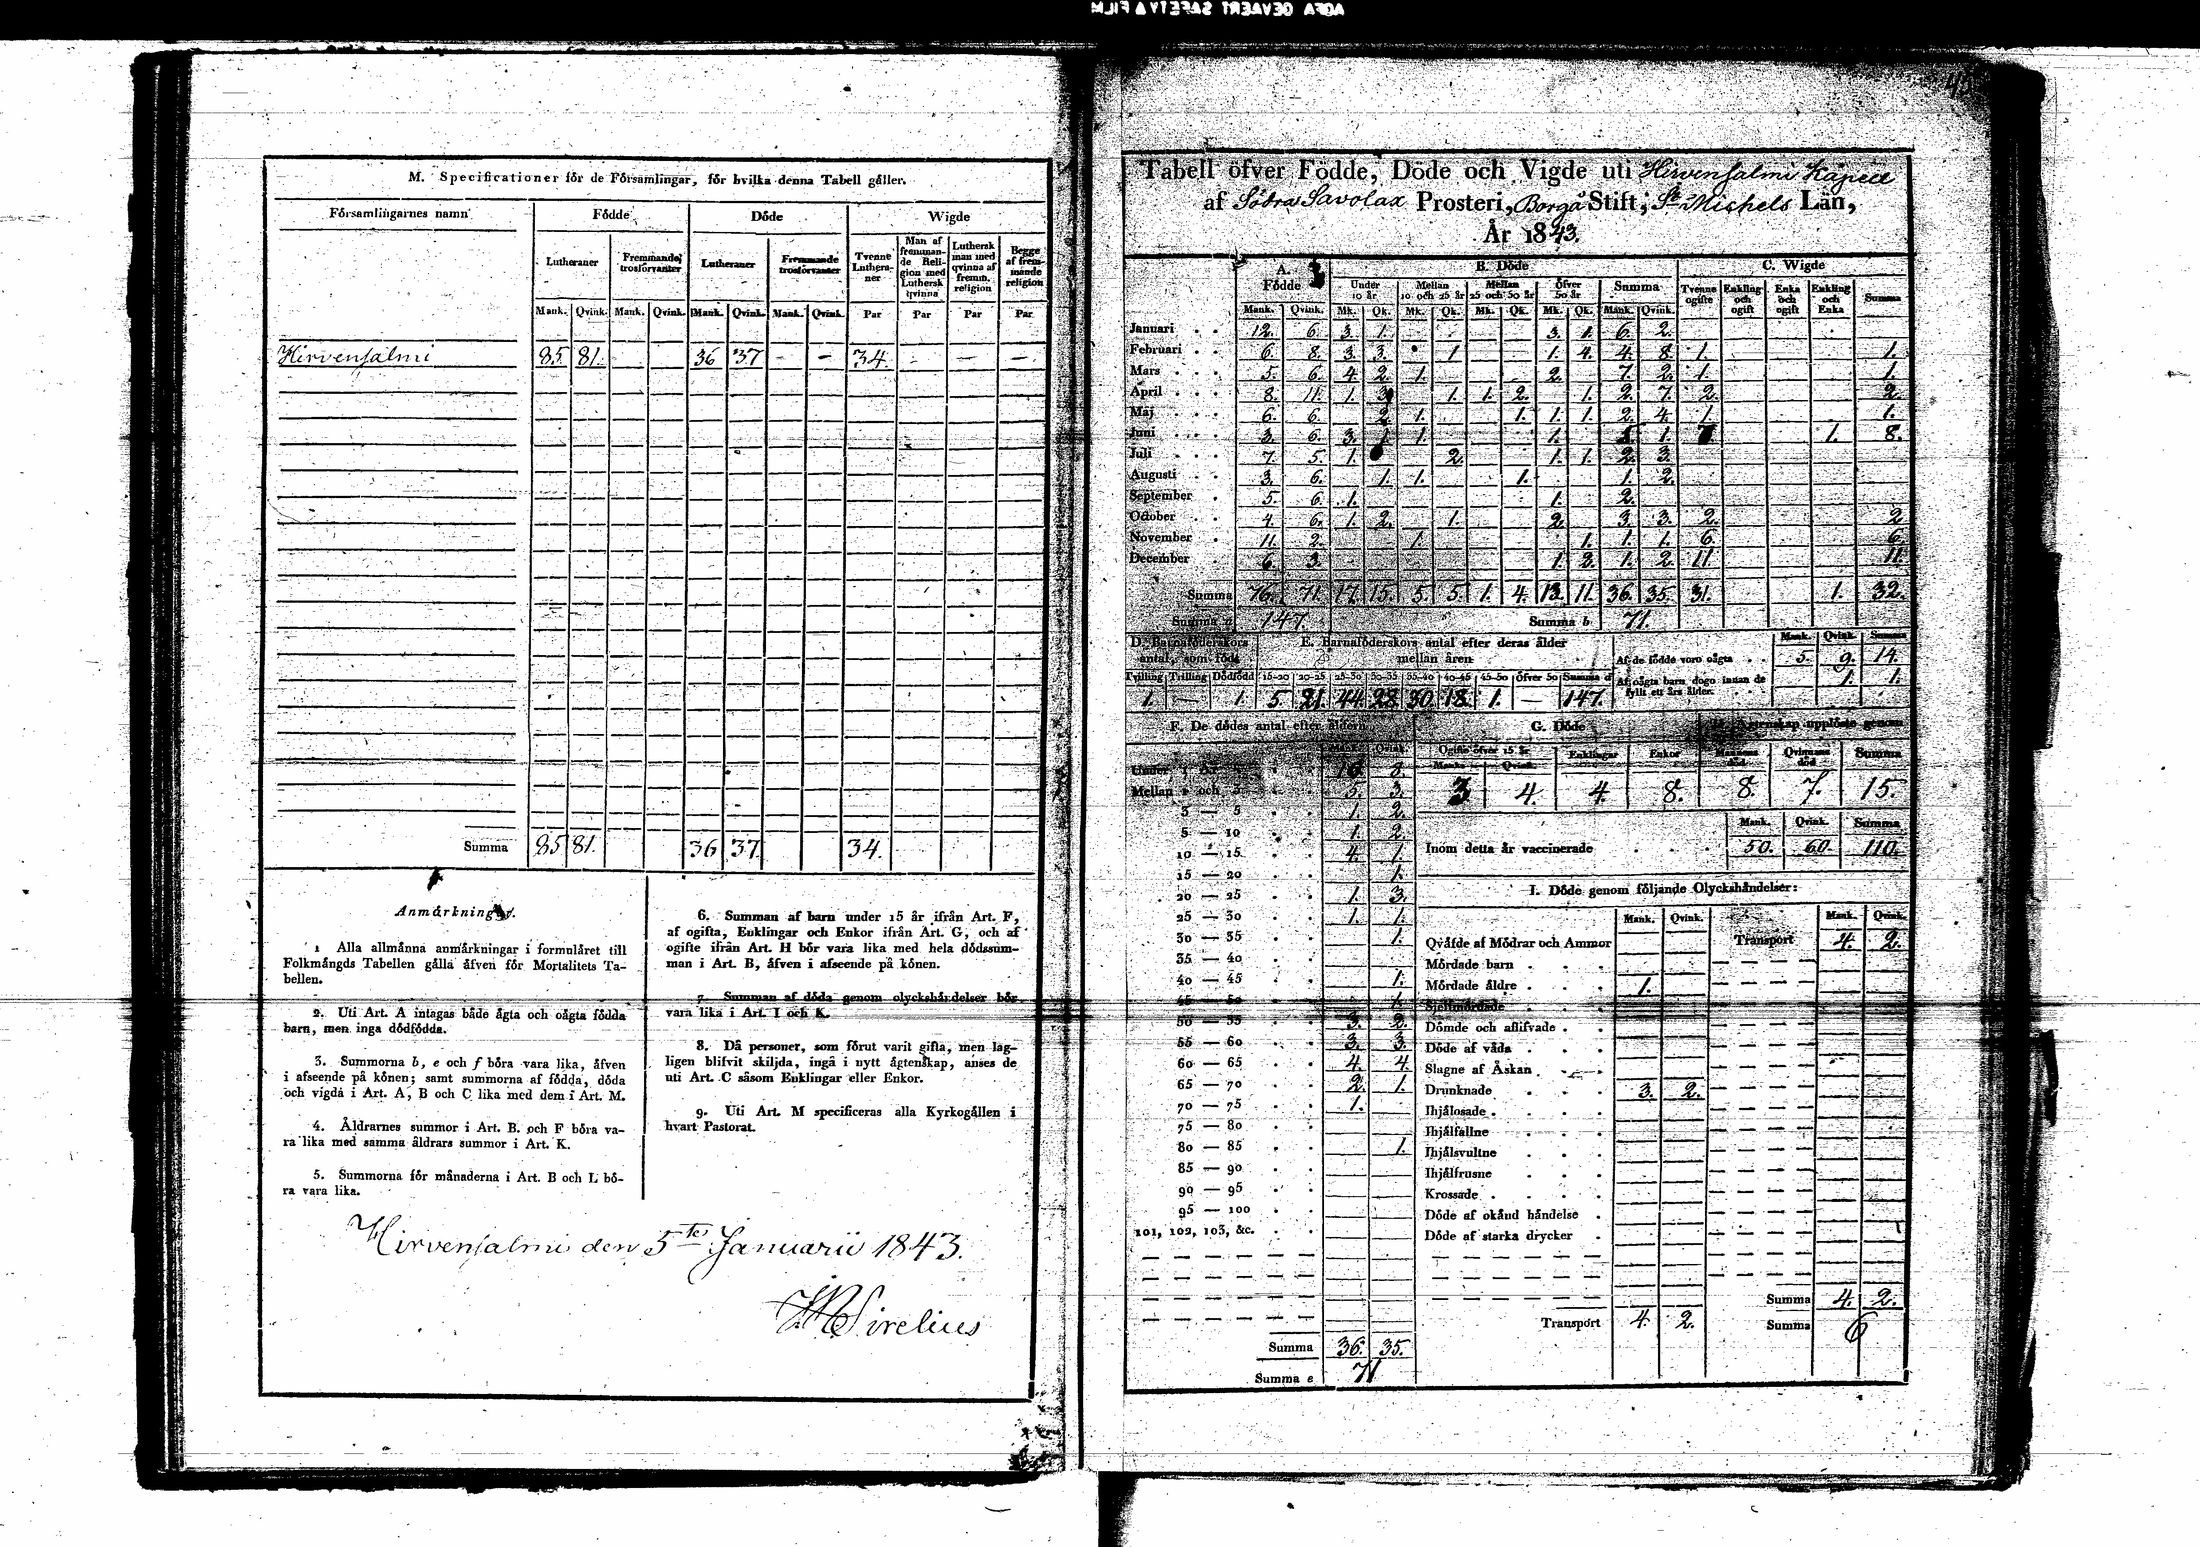 AGFA GEVAERT SAFETY FILM
M. Specificationer för de Församlingar, för hvilka denna Tabell gäller.
Församlingarnes namn Födde Döde Wigde
Lutheraner Fremmande trosförvanter Lutheraner Fremmande trosförvanter Tvenne Lutheraner Man af fremmande Religion med Luthersk qvinna Luthersk man med qvinna af fremm. religion Begge af fremmande religion
Mank. Qvink. Mank. Qvink. Mank. Qvink. Mank. Qvink. Par Par Par Par
Hirvensalmi 85 81. 36 37 - - 34. - - -
Summa 85 81. 36 37. 34.
Anmärkningar.
1 Alla allmänna anmärkningar i formuläret till
Folkmängds Tabellen gälla äfven för Mortalitets Ta-
bellen.
2. Uti Art. A intagas både ägta och oägta födda
barn, men inga dödfödda.
3. Summorna b, e och f böra vara lika, äfven
i afseende på könen; samt summorna af födda, döda
och vigda i Art. A, B och C lika med dem i Art. M.
4. Åldrarnes summor i Art. B. och F böra va-
ra lika med samma åldrars summor i Art. K.
5. Summorna för månaderna i Art. B och L bö-
ra vara lika.
6. Summan af barn under 15 år ifrån Art. F,
af ogifta, Enklingar och Enkor ifrån Art. G, och af
ogifte ifrån Art. H bör vara lika med hela dödssum-
man i Art. B, äfven i afseende på könen.
7. Summan af döda genom olyckshändelser bör
vara lika i Art. I och K.
8. Då personer, som förut varit gifta, men lag-
ligen blifvit skiljda, ingå i nytt ägtenskap, anses de
uti Art. C såsom Enklingar eller Enkor.
9. Uti Art. M specificeras alla Kyrkogällen i
hvart Pastorat.
Hirvensalmi den 5te Januarii 1843.
Sirelius
Tabell öfver Födde, Döde och Vigde uti Hirvensalmi Kapell
af Södra Savolax Prosteri, Borgå Stift, St Michels Län,
År 1843.
A. Födde B. Döde C. Wigde
Under 10 år Mellan 10 och 25 år Mellan 25 och 50 år Öfver 50 år Summa Tvenne ogifte Enkling och ogift Enka och ogift Enkling och Enka Summa
Mank. Qvink. Mk. Qk. Mk. Qk. Mk. Qk. Mk. Qk. Mank. Qvink.
Januari 12. 6. 3. 1. 3. 1. 6. 2.
Februari 6. 8. 3. 3. 1 1. 4. 4. 8. 1. 1.
Mars 5. 6. 4. 2. 1. 2. 7. 2. 1. 1.
April 8. 11. 1. 3 1. 1. 2. 1. 2. 7. 2. 2.
Maj 6. 6. 2. 1. 1. 1. 1. 2. 4. 1. 1.
Juni 3. 6. 3. 1. 1. 1. 1. 1. 8.
Juli 7. 5. 1. 2. 1. 1. 2. 3.
Augusti 3. 6. 1. 1. 1. 1. 2.
September 5. 6. 1. 1. 2.
October 4. 6. 1. 2. 1. 2. 3. 3. 2. 2
November 11. 2. 1. 1. 1. 1. 6. 6.
December 6. 3. 1. 2. 1. 2. 11. 11.
Summa 76. 71. 17. 15. 5. 5. 1. 4. 13. 11. 36. 35. 31. 1. 32.
Summa a 147. Summa b 71.
D. Barnaföderskors antal, som födt E. Barnaföderskors antal efter deras ålder mellan åren
Tvilling Trilling Dödfödd 15-20 20-25 25-30 30-35 35-40 40-45 45-50 Öfver 50 Summa d
1. — 1. 5. 21. 44. 28. 30. 18. 1. — 147.
Mank. Qvink. Summa
Af de födde voro oägta 5. 9. 14.
Af oägta barn dogo innan de fyllt ett års ålder. 1. 1.
F. De dödes antal efter åldern
Mank. Qvink.
Under 1 år 3.
Mellan 1 och 3 5. 3.
3 — 5 1. 2.
5 — 10 1. 2.
10 — 15 4. 1.
15 — 20 1.
20 — 25 1. 3.
25 — 30 1. 1.
30 — 35 1.
35 — 40
40 — 45 1.
45 — 50 1.
50 — 55 3. 2.
55 — 60 3. 3.
60 — 65 4. 4.
65 — 70 2. 1.
70 — 75 1.
75 — 80
80 — 85 1.
85 — 90
90 — 95
95 — 100
101, 102, 103, &c.
Summa 36. 35.
Summa e 71
G. Döde H. Ägtenskap upplöste genom
Ogifte öfver 15 år Enklingar Enkor Mannens död Qvinnans död Summa
Mank. Qvink.
3 4. 4. 8. 8. 7. 15.
Mank. Qvink. Summa
Inom detta år vaccinerade 50. 60. 110.
I. Döde genom följande Olyckshändelser:
Mank. Qvink. Mank. Qvink.
Qväfde af Mödrar och Ammor Transport 4. 2.
Mördade barn
Mördade äldre 1.
Sjelfmördade
Dömde och aflifvade
Döde af våda
Slagne af Åskan
Drunknade 3. 2.
Ihjälosade
Ihjälfallne
Ihjälsvultne
Ihjälfrusne
Krossade
Döde af okänd händelse
Döde af starka drycker
Summa 4. 2.
Transport 4. 2. Summa 6